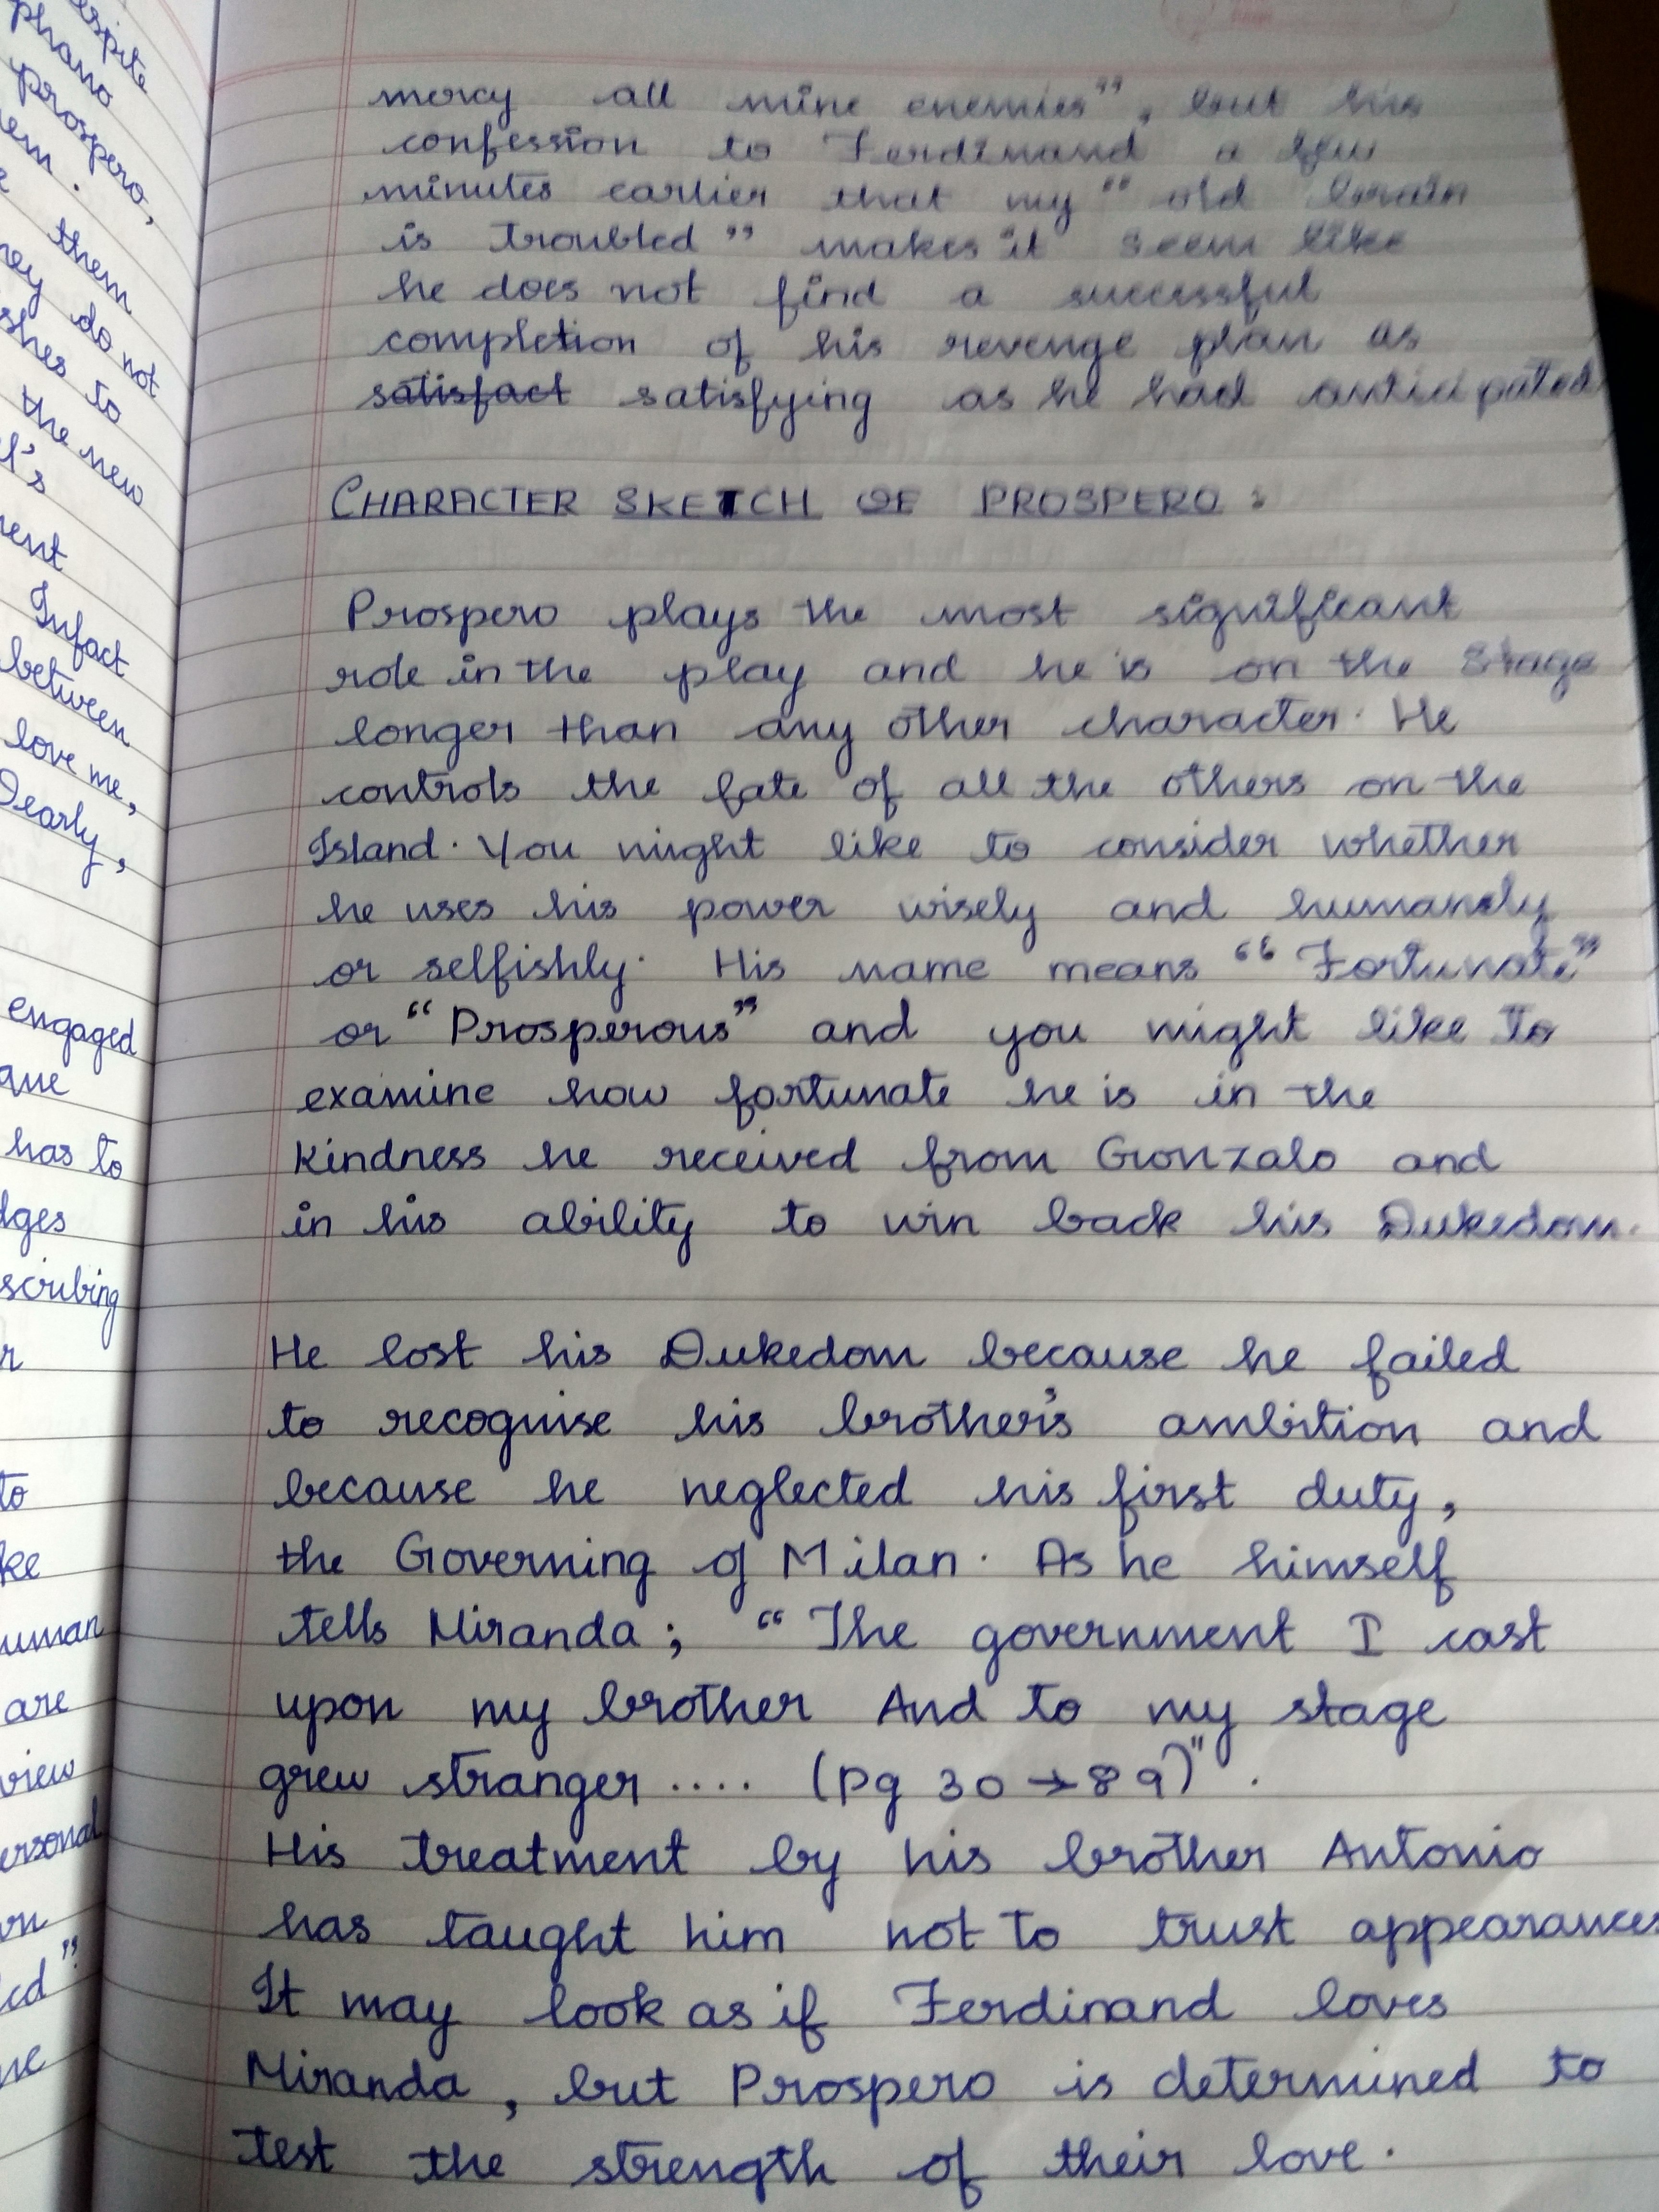 espite
phano
prospero,
em.
them
ey do not
shes to
the new
l's
ment
Infact
between
love me,
Dearly,
engaged
que
has to
dges
scribing
r
to
ke
uman
are
view
ersonal
on
cd"
ne
mercy all mine enemies", but his
confession to Ferdinand a few
minutes earlier that my "old brain
is troubled" makes it seem like
he does not find a successful
completion of his revenge plan as
satisfact satisfying as he had anticipated
CHARACTER SKETCH OF PROSPERO :
Prospero plays the most significant
role in the play and he is on the stage
longer than any other character. He
controls the fate of all the others on the
Island. You might like to consider whether
he uses his power wisely and humanely
or selfishly. His name means "Fortunate"
or "Prosperous" and you might like to
examine how fortunate he is in the
kindness he received from Gonzalo and
in his ability to win back his Dukedom.
He lost his Dukedom because he failed
to recognise his brother's ambition and
because he neglected his first duty,
the Governing of Milan. As he himself
tells Miranda; "The government I cast
upon my brother And to my stage
grew stranger .... (pg 30 → 89)".
His treatment by his brother Antonio
has taught him not to trust appearances
It may look as if Ferdinand loves
Miranda, but Prospero is determined to
test the strength of their love.